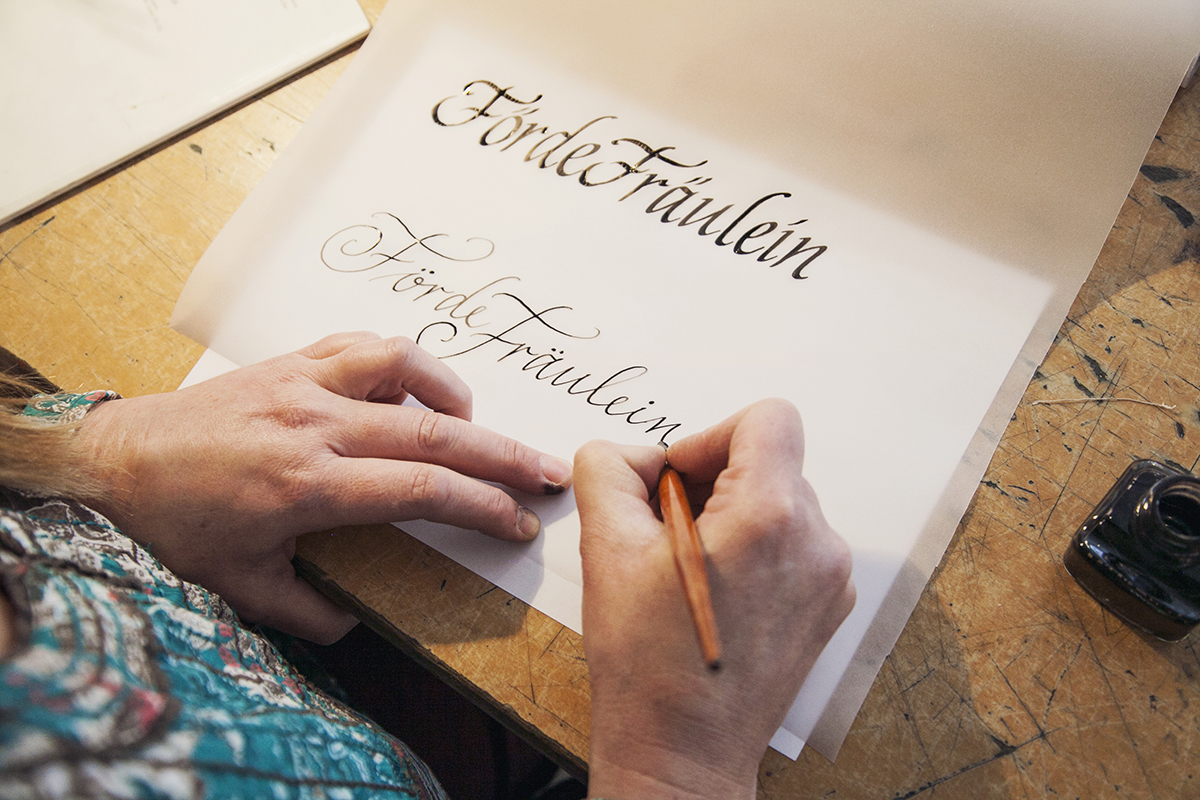 FördeFräulein
FördeFräulein